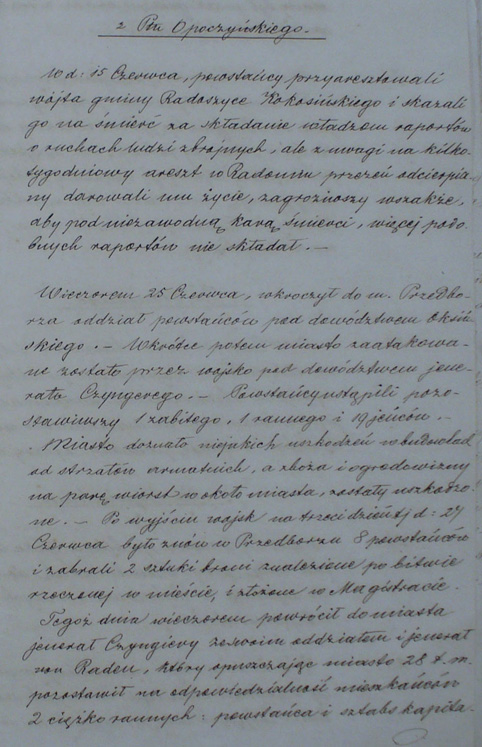 z Ptu Opoczyńskiego.
W d: 15 Czerwca, powstańcy przyaresztowali
wójta gminy Radoszyce Kokosińskiego i skazali
go na śmierć za składanie władzom raportów
o ruchach ludzi zbrojnych, ale z uwagi na kilko-
tygodniowy areszt w Radomiu przezeń odcierpia-
ny darowali mu życie, zagroziwszy wszakże,
aby pod niezawodną karą śmierci, więcej podo-
bnych raportów nie składał. —
Wieczorem 25 Czerwca, wkroczył do m. Przedbo-
rza oddział powstańców pod dowództwem Oksiń-
skiego. — Wkrótce potem miasto zaatakowa-
ne zostało przez wojsko pod dowództwem jene-
rała Czyngerego. — Powstańcy ustąpili pozo-
stawiwszy 1 zabitego, 1 rannego i 19 jeńców. —
Miasto doznało niejakich uszkodzeń w budowlach
od strzałów armatnich, a zboża i ogrodowizny
na parę wiorst w około miasta, zostały uszkodzo-
ne. — Po wyjściu wojsk na trzeci dzień tj d: 27
Czerwca było znów w Przedborzu 8 powstańców
i zabrali 2 sztuki broni znalezione po bitwie
rzeczonej w mieście, i złożone w Magistracie.
Tegoż dnia wieczorem powrócił do miasta
jenerał Czyngiery ze swoim oddziałem i jenerał
von Raden, który opuszczając miasto 28 t. m.
pozostawił na odpowiedzialność mieszkańców
2 ciężko rannych: powstańca i sztabs kapita-